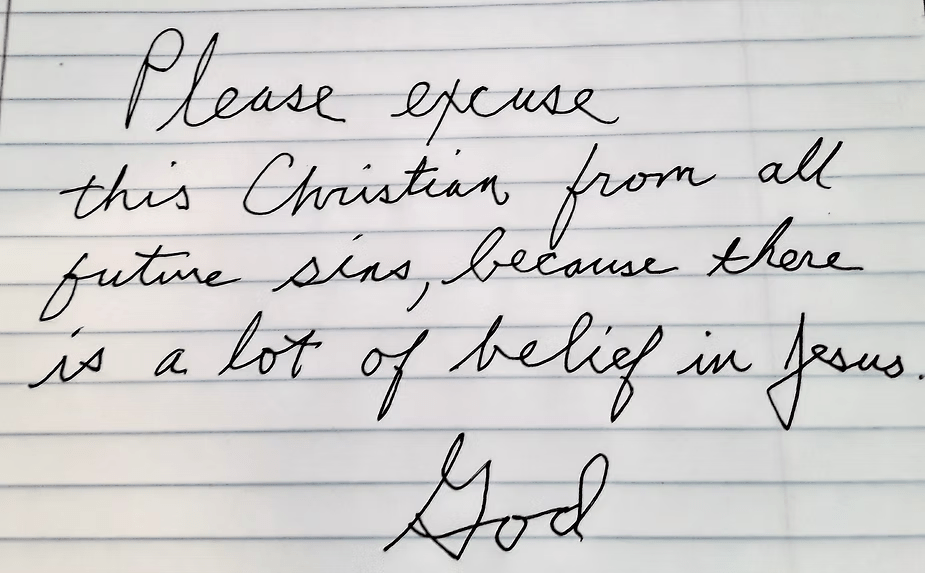 Please excuse
this Christian from all
future sins, because there
is a lot of belief in Jesus.
God